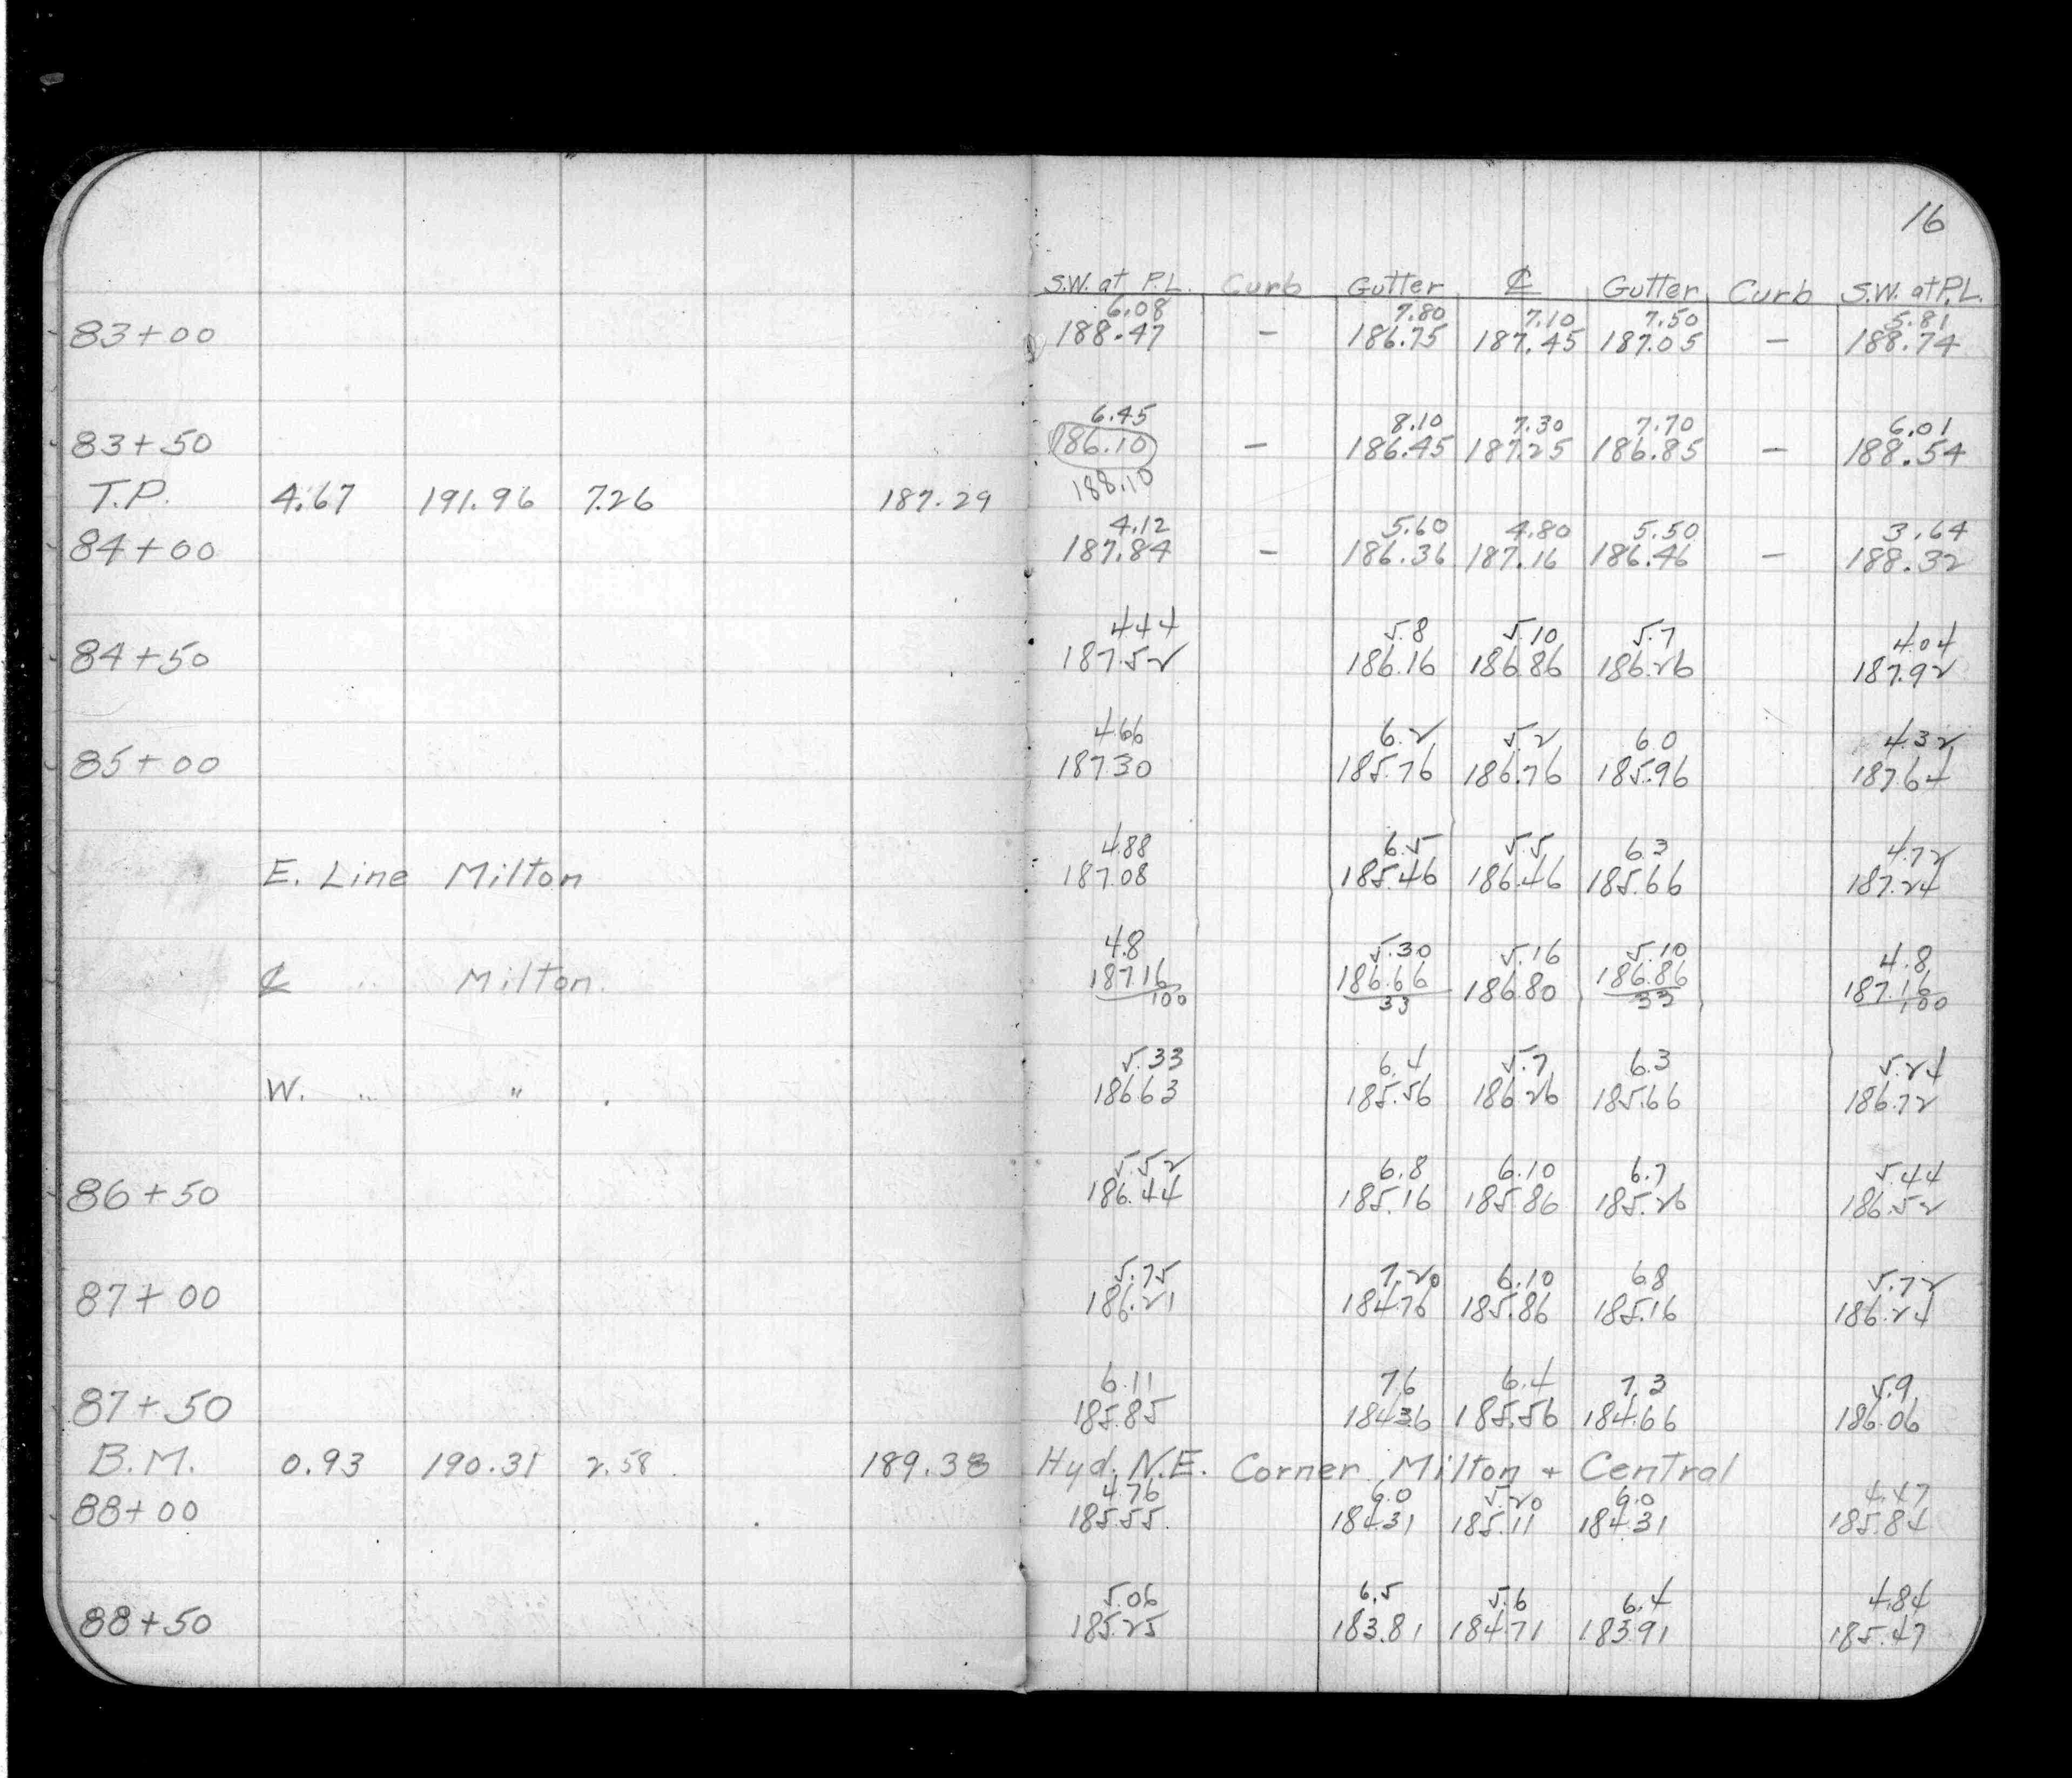 16
S.W. at P.L. Curb Gutter ℄ Gutter Curb S.W. at P.L.
6.08 7.80 7.10 7.50 5.81
83+00 188.47 – 186.75 187.45 187.05 – 188.74
6.45 8.10 7.30 7.70 6.01
83+50 186.10 – 186.45 187.25 186.85 – 188.54
T.P. 4.67 191.96 7.26 187.29 188.10
4.12 5.60 4.80 5.50 3.64
84+00 187.84 – 186.36 187.16 186.46 – 188.32
4.44 5.8 5.10 5.7 4.04
84+50 187.52 186.16 186.86 186.26 187.92
4.66 6.2 5.2 6.0 4.32
85+00 187.30 185.76 186.76 185.96 187.64
4.88 6.5 5.5 6.3 4.72
E. Line Milton 187.08 185.46 186.46 185.66 187.24
4.8 5.30 5.16 5.10 4.8
℄ " Milton. 187.16 186.66 186.80 186.86 187.16
100 33 33 100
5.33 6.4 5.7 6.3 5.24
W. " " . 186.63 185.56 186.26 185.66 186.72
5.52 6.8 6.10 6.7 5.44
86+50 186.44 185.16 185.86 185.26 186.52
5.75 7.20 6.10 6.8 5.72
87+00 186.21 184.76 185.86 185.16 186.24
6.11 7.6 6.4 7.3 5.9
87+50 185.85 184.36 185.56 184.66 186.06
B.M. 0.93 190.31 2.58 189.38 Hyd. N.E. Corner Milton + Central
4.76 6.0 5.20 6.0 4.47
88+00 185.55 184.31 185.11 184.31 185.84
5.06 6.5 5.6 6.4 4.84
88+50 185.25 183.81 184.71 183.91 185.47